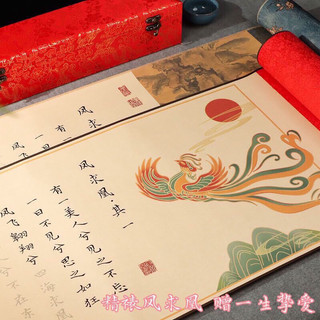 凤求凰其一
有一美人兮见之不忘
一日不见兮思之如狂
凤飞翱翔兮
四海求凰
凤求
有一
一日
凤飞
精裱凤求凰 赠一生挚爱